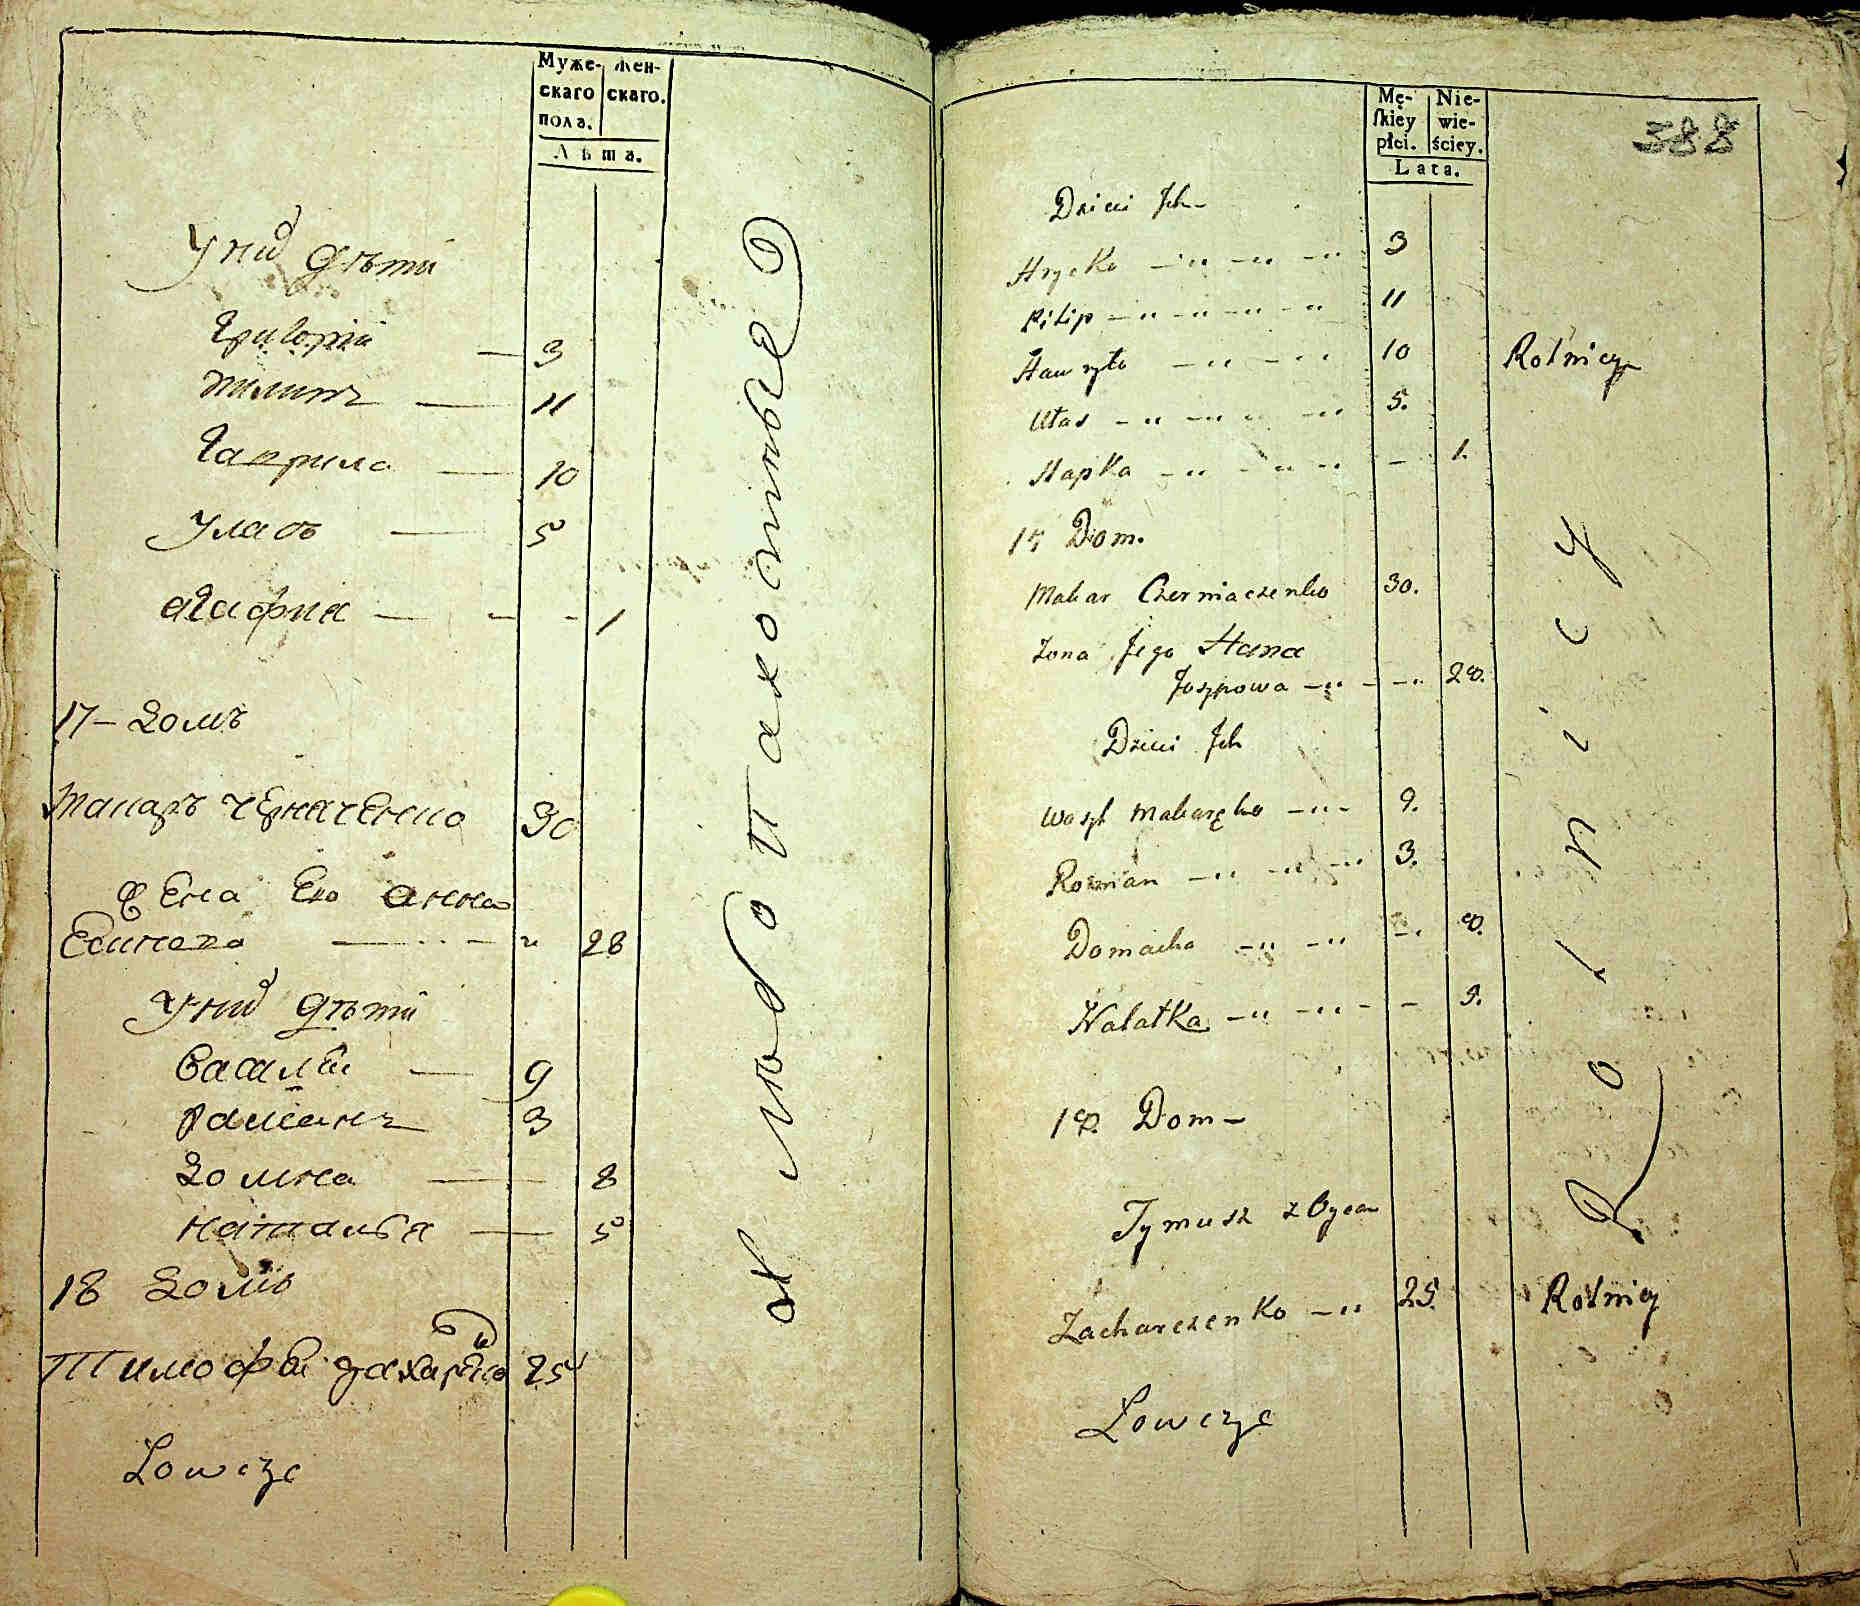 Муже-
скаго
пола.
Жен-
скаго.
Лѣта.
У нихъ дѣти
Григорій — 3
Пилипъ — 11
Гаврила — 10
Уласъ — 5
Агафия — - - 1
17 – Домъ
Макаръ Черняченко 30
Жена Его Анна
— .. — " 28
У нихъ дѣти
Василѣй — 9
Раманъ 3
Домна — 8
Наталья — 5
18 Домъ
Тимофѣй Захарченко 25
Lowcze
Хлѣбопахотные
Mę-
ſkiey
płci.
Nie-
wie-
ściey.
Lata.
388
Dzieci Jch -
Hrycko — " — " — " 3
Pilip — " — " — " — " 11
Hawryło — " — " 10 Rolnicy
Ułas — " — " — " 5.
Hapka — " — " — " — 1.
17 Dom.
Makar Czerniaczenko 30.
Zona Jego Hana
Jozpowa — " — — " 28.
Dzieci Jch
Wasyl Makaręko — " — 9.
Roman — " — " — " 3.
Domacha — " — " — " 8.
Natałka — " — " — — 5.
18. Dom —
Tymusz z Oycem
Zacharczenko — " 25. Rolnicy
Lowcze
Rolnicy